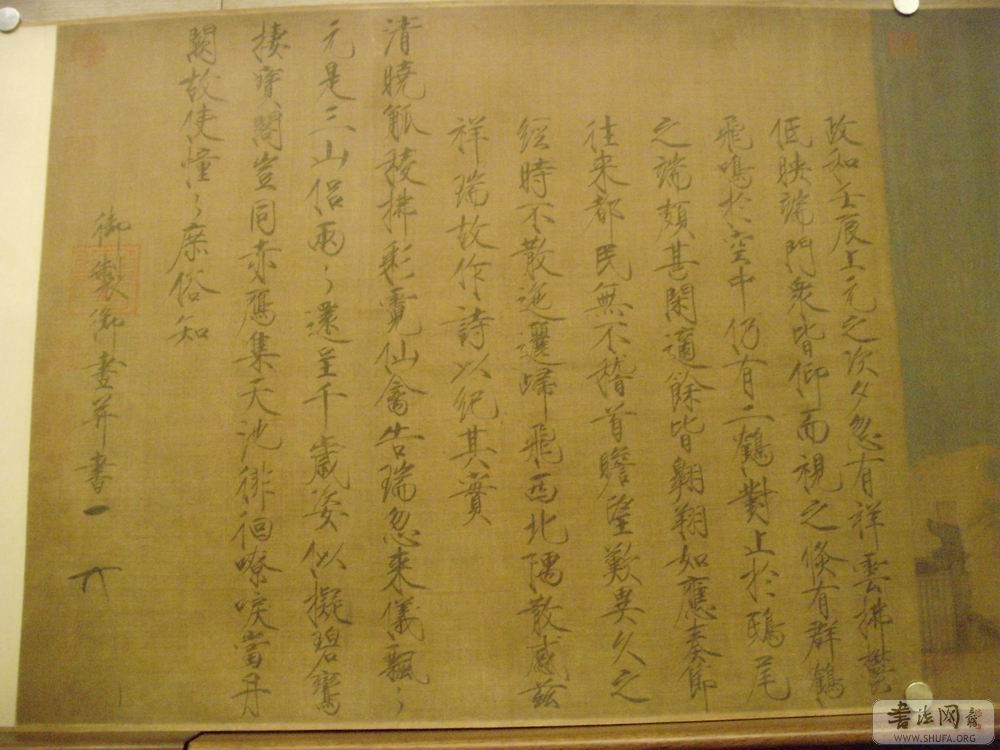 政和壬辰上元之次夕忽有祥雲拂鬱
低映端門衆皆仰而視之倏有群鶴
飛鳴於空中仍有二鶴對止於鴟尾
之端頗甚閑適餘皆翱翔如應奏節
往来都民無不稽首瞻望歎異久之
經時不散迤邐歸飛西北隅散感兹
祥瑞故作詩以紀其實
清曉觚稜拂彩霓仙禽告瑞忽来儀飄〻
元是三山侣兩〻還呈千歲姿似擬碧鸞
棲寶閣豈同赤鴈集天池徘徊嘹唳當丹
闕故使憧〻庶俗知
御製御畫并書
書法网
WWW.SHUFA.ORG